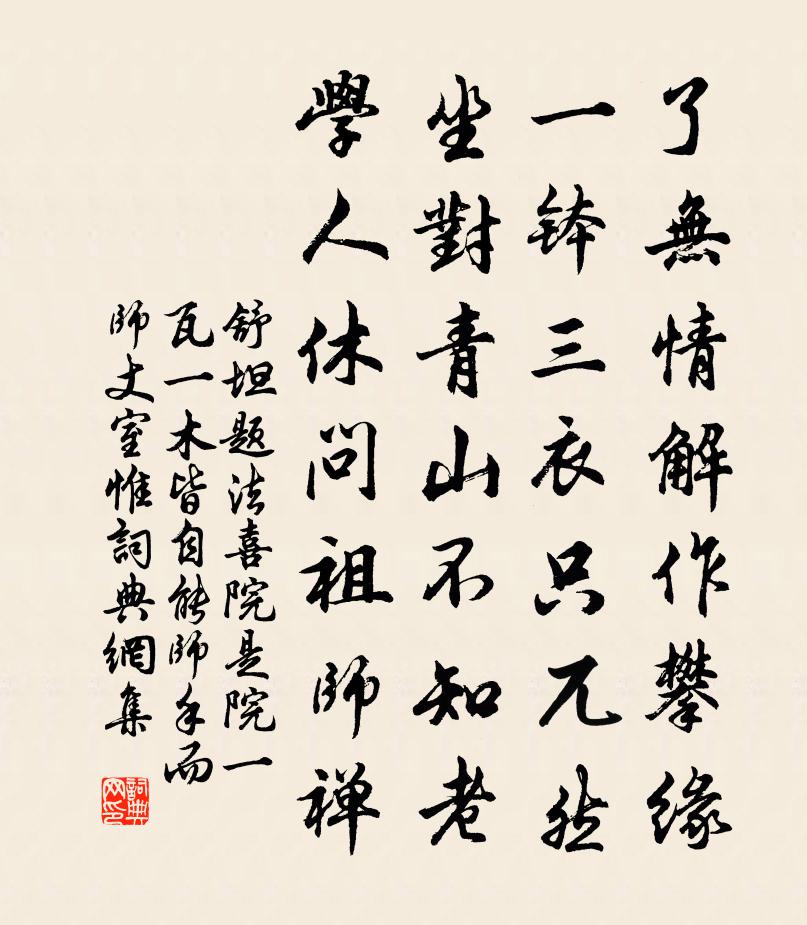 了無情解作攀緣
一鉢三衣只兀然
坐對青山不知老
學人休問祖師禅
舒坦题法喜院是院一
瓦一木皆自能師手而
師丈室惟詞典網集
詞典网印